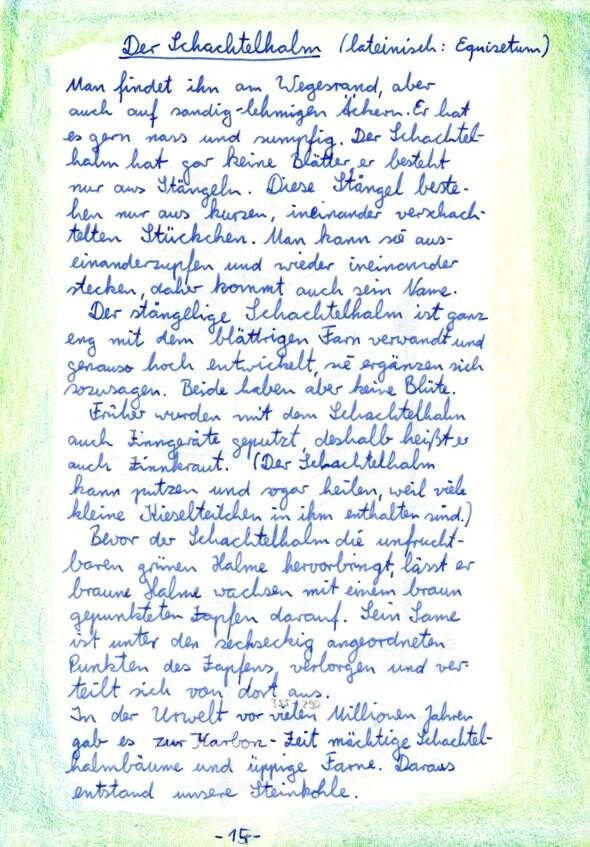 Der Schachtelhalm (lateinisch: Equisetum)
Man findet ihn am Wegesrand, aber
auch auf sandig-lehmigen Äckern. Er hat
es gern nass und sumpfig. Der Schachtel-
halm hat gar keine Blätter, er besteht
nur aus Stängeln. Diese Stängel beste-
hen nur aus kurzen, ineinander verschach-
telten Stückchen. Man kann sie aus-
einanderzupfen und wieder ineinander
stecken, daher kommt auch sein Name.
Der stängelige Schachtelhalm ist ganz
eng mit dem blättrigen Farn verwandt und
genauso hoch entwickelt, sie ergänzen sich
sozusagen. Beide haben aber keine Blüte.
Früher wurden mit dem Schachtelhalm
auch Zinngeräte geputzt, deshalb heißt er
auch Zinnkraut. (Der Schachtelhalm
kann putzen und sogar heilen, weil viele
kleine Kieselteilchen in ihm enthalten sind.)
Bevor der Schachtelhalm die unfrucht-
baren grünen Halme hervorbringt, lässt er
braune Halme wachsen mit einem braun
gepunkteten Zapfen darauf. Sein Same
ist unter den sechseckig angeordneten
Punkten des Zapfens verborgen und ver-
teilt sich von dort aus.
In der Urwelt vor vielen Millionen Jahren
gab es zur Karbon-Zeit mächtige Schachtel-
halmbäume und üppige Farne. Daraus
entstand unsere Steinkohle.
-15-